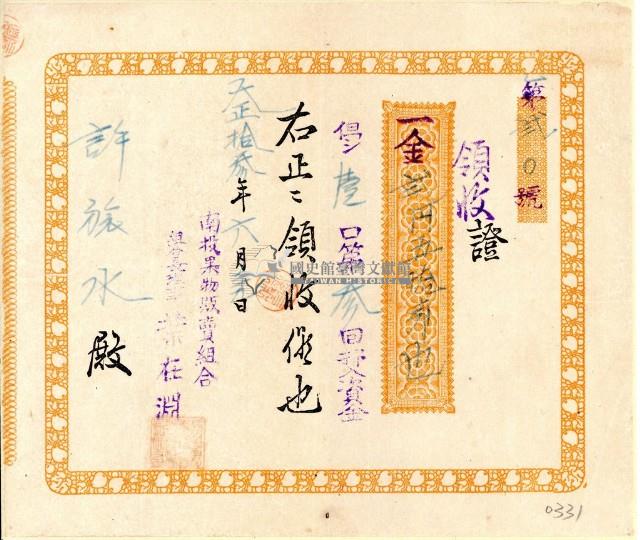 第貳0號
領收證
一金貳円五拾錢也
但シ壹口第參回拂込資金
右正ニ領收候也
大正拾參年六月 日
南投果物販賣組合
在淵
許 水 殿
國史館臺灣文獻館
TAIWAN HISTORICA
0331